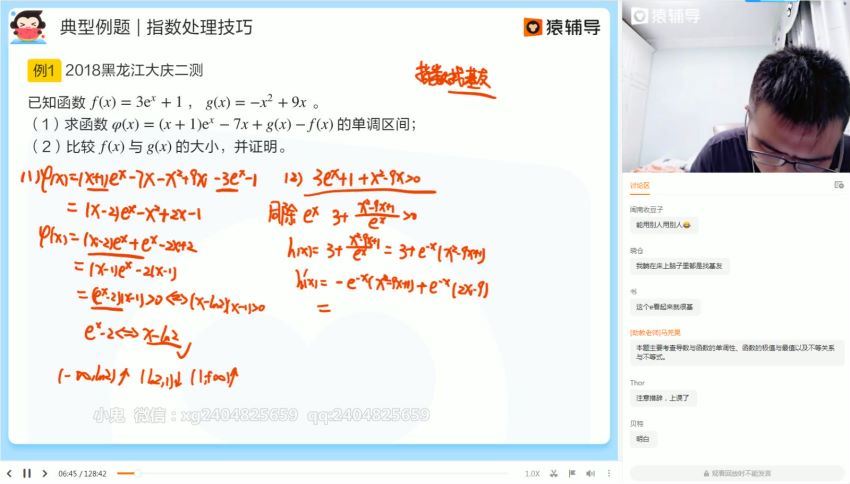 典型例题 | 指数处理技巧
猿辅导
例1 2018黑龙江大庆二测
指数找基友
已知函数 f(x) = 3eˣ + 1 ， g(x) = −x² + 9x 。
（1）求函数 φ(x) = (x + 1)eˣ − 7x + g(x) − f(x) 的单调区间；
（2）比较 f(x) 与 g(x) 的大小，并证明。
(1) φ(x)=(x+1)eˣ-7x-x²+9x-3eˣ-1
=(x-2)eˣ-x²+2x-1
φ'(x)=(x-2)eˣ+eˣ-2x+2
=(x-1)eˣ-2(x-1)
=(eˣ-2)(x-1)>0⇔(x-ln2)(x-1)>0
eˣ-2⇔x-ln2
(-∞,ln2)↑ (ln2,1)↓ (1,+∞)↑
(2) 3eˣ+1+x²-9x>0
同除 eˣ 3+(x²-9x+1)/eˣ>0
h(x)=3+(x²-9x+1)/eˣ=3+e⁻ˣ(x²-9x+1)
h'(x)=-e⁻ˣ(x²-9x+1)+e⁻ˣ(2x-9)
=
小鬼 微信：xg2404825659 qq:2404825659
06:45 / 128:42
1.0X
猿辅导
讨论区
闽南收豆子
能用别人用别人😂
晓仓
我躺在床上脑子里都是找基友
书
这个e看起来就很基
[助教老师]马芫晃
本题主要考查导数与函数的单调性、函数的极值与最值以及不等关系
与不等式。
Thor
注意措辞，上课了
贝柏
明白
观看回放时不能发言